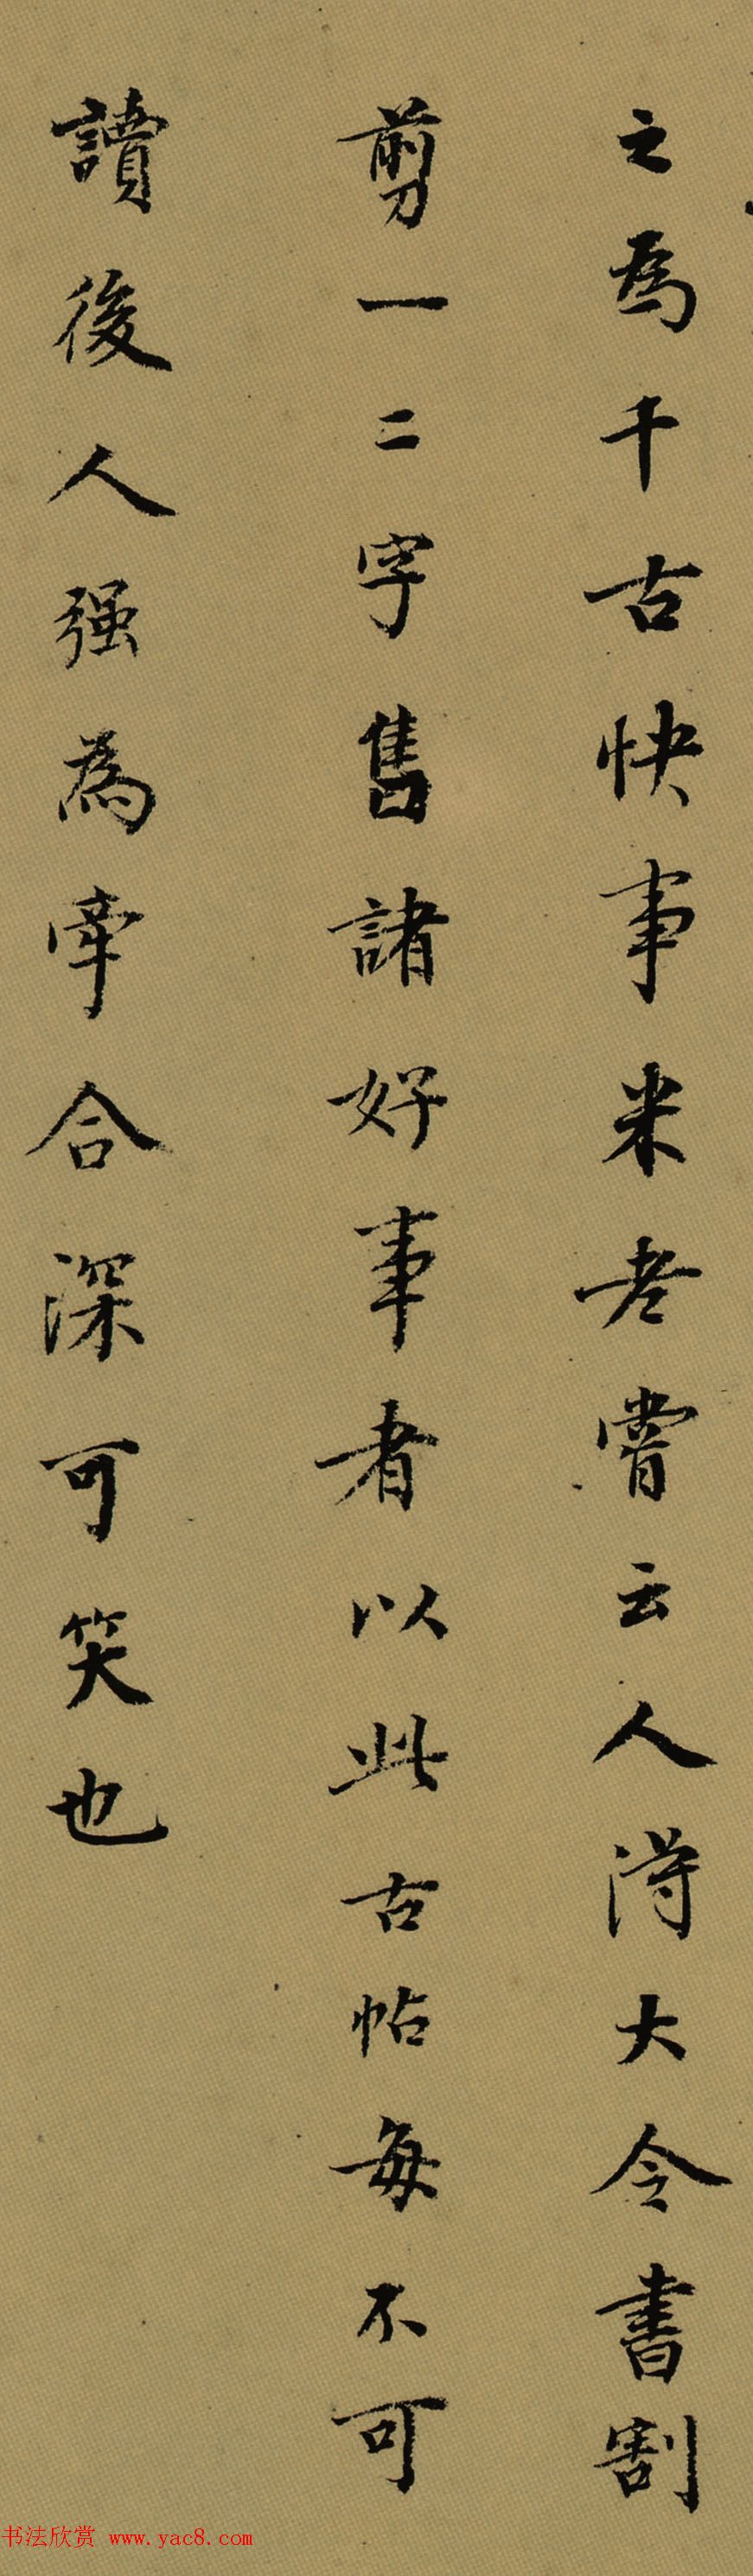 之為千古快事米老嘗云人得大令書割
剪一二字售諸好事者以此古帖每不可
讀後人强為牽合深可笑也
书法欣赏 www.yac8.com